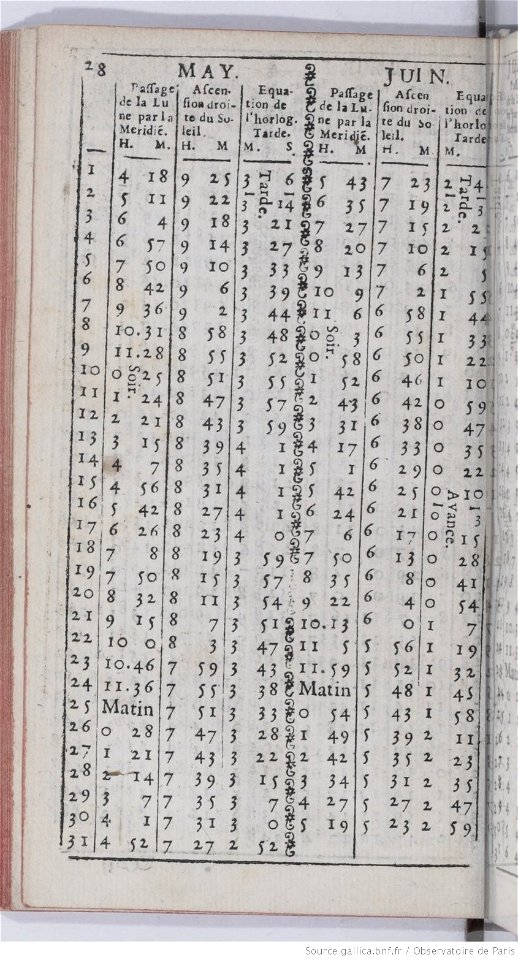 28 MAY. JUIN.
Passage de la Lune par la Meridiē.
Ascension droite du Soleil.
Equation de l'horlog. Tarde.
Passage de la Lune par la Meridiē.
Ascension droite du Soleil.
l'horlo Tarde
H. M. H. M M. S H. M. H. M M.
1 4 18 9 25 3 6 5 43 7 23 2 4
2 5 11 9 22 3 14 6 35 7 19 2 3
3 6 4 9 18 3 21 7 27 7 15 2 2
4 6 57 9 14 3 27 8 20 7 10 2 15
5 7 50 9 10 3 33 9 13 7 6 2 5
6 8 42 9 6 3 39 10 9 7 2 1 55
7 9 36 9 2 3 44 11 6 6 58 1 44
8 10.31 8 58 3 48 0 3 6 55 1 33
9 11.28 8 55 3 52 0 58 6 50 1 22
10 0 25 8 51 3 55 1 52 6 46 1 10
11 1 24 8 47 3 57 2 43 6 42 0 59
12 2 21 8 43 3 59 3 31 6 38 0 47
13 3 15 8 39 4 1 4 17 6 33 0 35
14 4 7 8 35 4 1 5 1 6 29 0 22
15 4 56 8 31 4 1 5 42 6 25 0 10
16 5 42 8 27 4 1 6 24 6 21 0 3
17 6 26 8 23 4 0 7 6 6 17 0 15
18 7 8 8 19 3 59 7 50 6 13 0 28
19 7 50 8 15 3 57 8 35 6 8 0 41
20 8 32 8 11 3 54 9 22 6 4 0 54
21 9 15 8 7 3 51 10.13 6 0 1 7
22 10 0 8 3 3 47 11 5 5 56 1 19
23 10.46 7 59 3 43 11.59 5 52 1 32
24 11.36 7 55 3 38 Matin 5 48 1 45
25 Matin 7 51 3 33 0 54 5 43 1 58
26 0 28 7 47 3 28 1 49 5 39 2 11
27 1 21 7 43 3 22 2 42 5 35 2 23
28 2 14 7 39 3 15 3 34 5 31 2 35
29 3 7 7 35 3 7 4 27 5 27 2 47
30 4 1 7 31 3 0 5 19 5 23 2 59
31 4 52 7 27 2 52
Soir.
Tarde.
Soir.
Tarde.
Avance.
Source gallica.bnf.fr / Observatoire de Paris